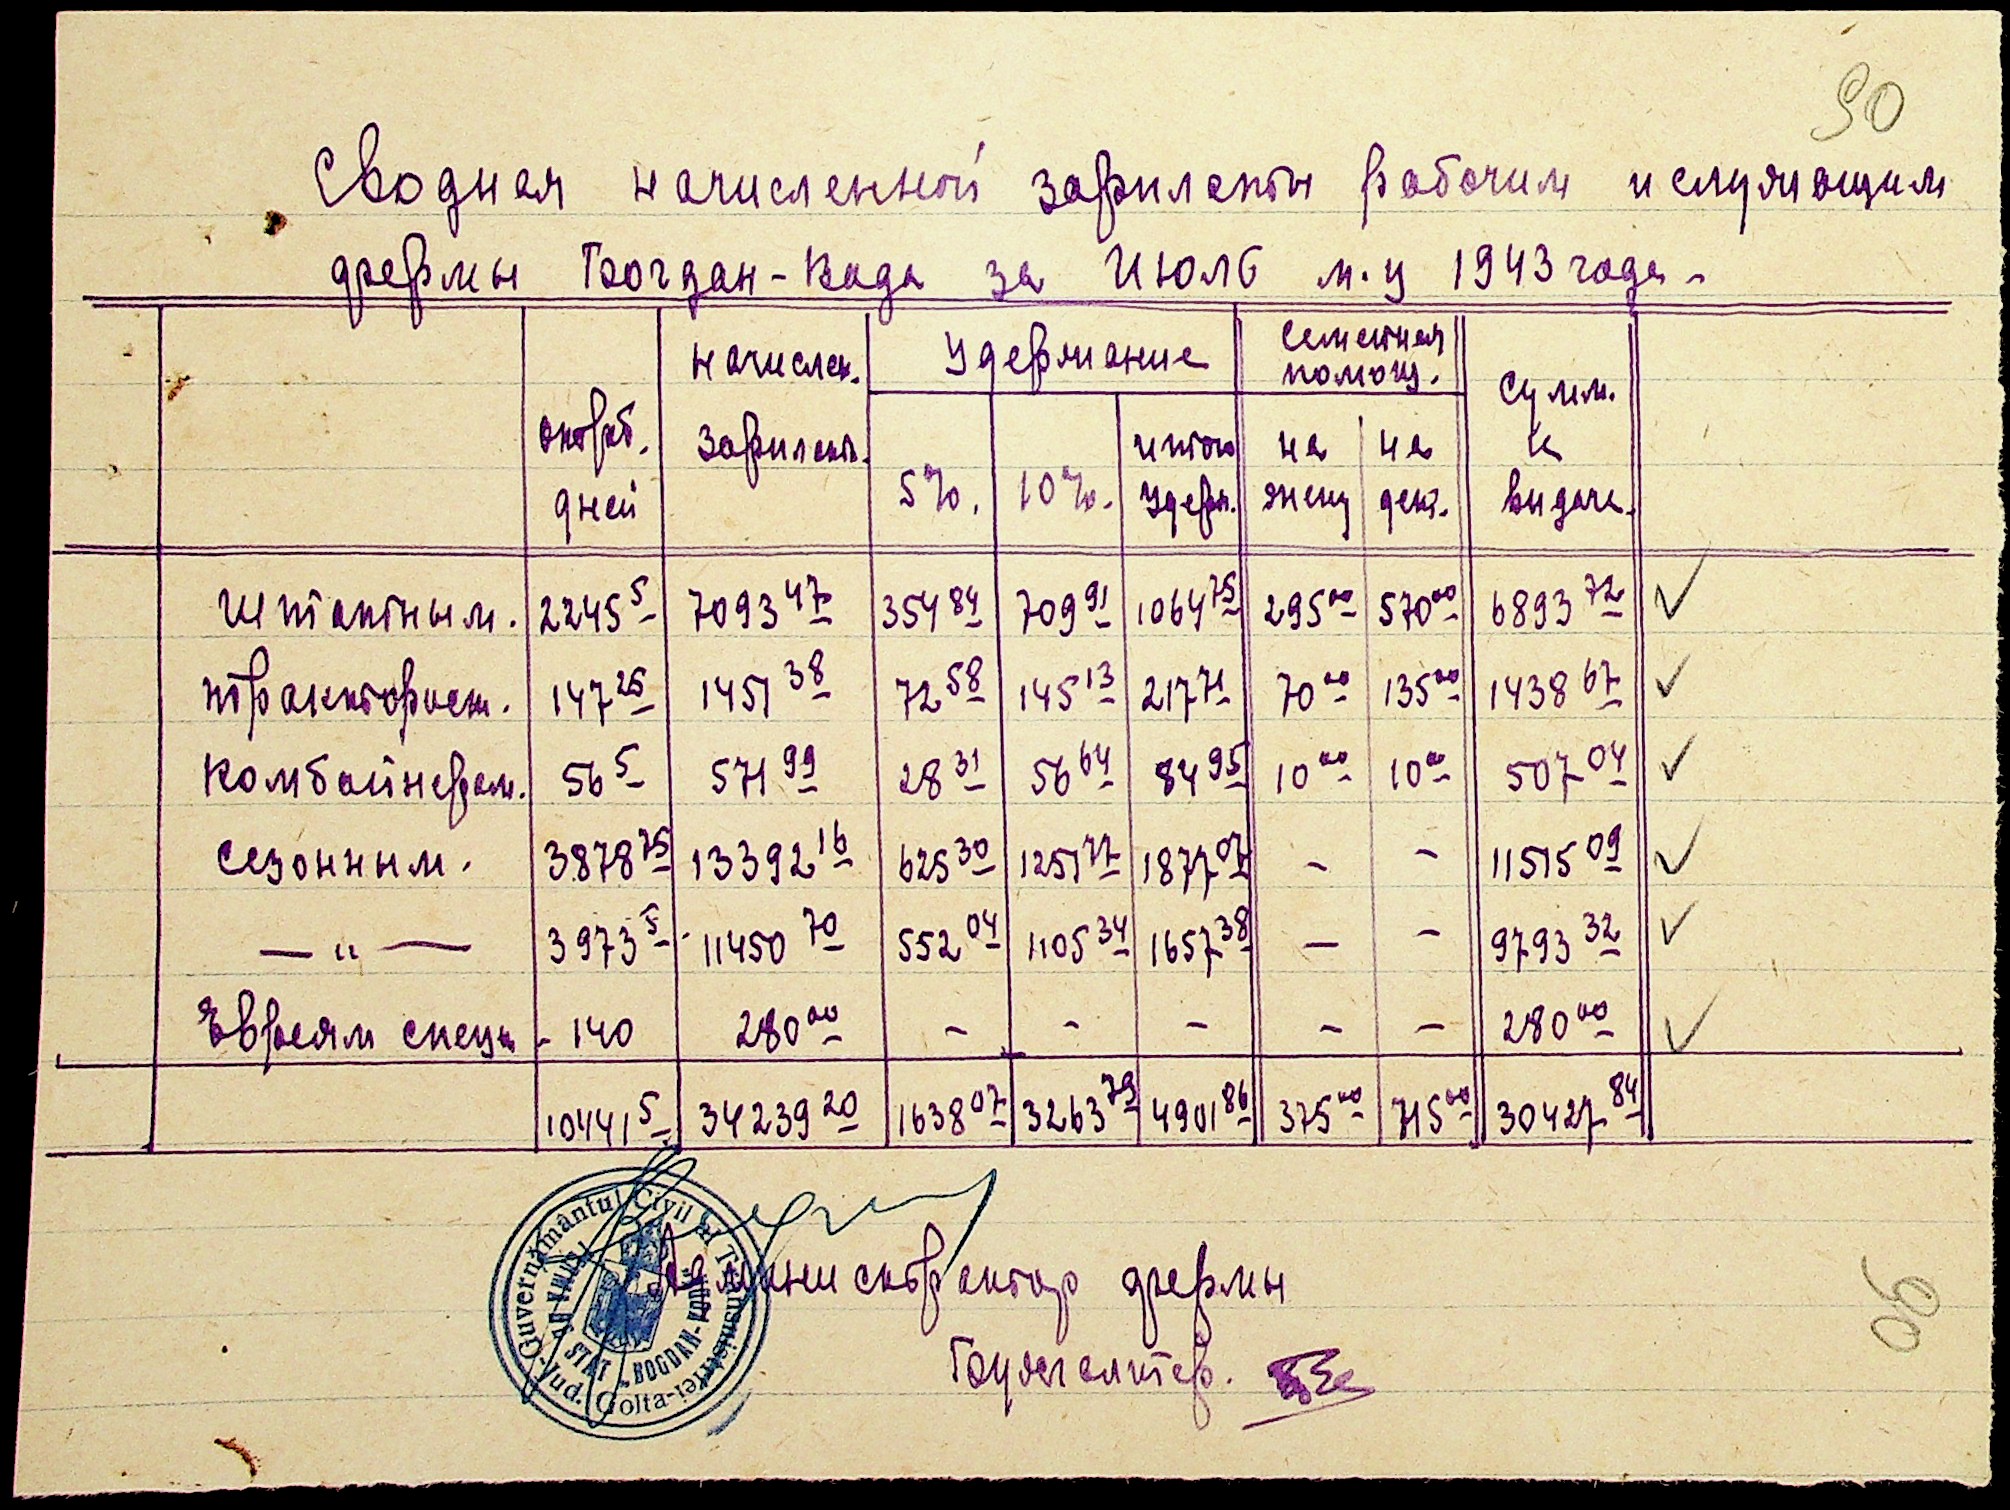 90
Сводная начисленной зарплаты рабочим и служащим
фермы Богдан-Вода за Июль м-ц 1943 года.
отраб. дней | начислен. зарплат. | Удержание | Семейная помощ. | Сумм. к выдаче.
5%. | 10%. | итого удерж. | на жену | на дет.
Штатным. 2245 5 7093 47 354 84 709 91 1064 75 295 00 570 00 6893 72 ✓
тракторист. 147 25 1451 38 72 58 145 13 217 71 70 00 135 00 1438 67 ✓
Комбайнерам. 56 5 571 99 28 31 56 64 84 95 10 00 10 00 507 04 ✓
Сезонным. 3878 75 13392 16 625 30 1251 77 1877 07 - - 11515 09 ✓
— „ — 3973 5 11450 70 552 04 1105 34 1657 38 — - 9793 32 ✓
Евреям спец. - 140 280 00 - - - - - 280 00 ✓
10441 5 34239 20 1638 07 3263 79 4901 86 375 00 715 00 30427 84
Guvernământul Civil al Transnistriei
Jud. Golta
STAT „BOGDAN-VODĂ"
Администратор фермы
Бухгалтер.
90